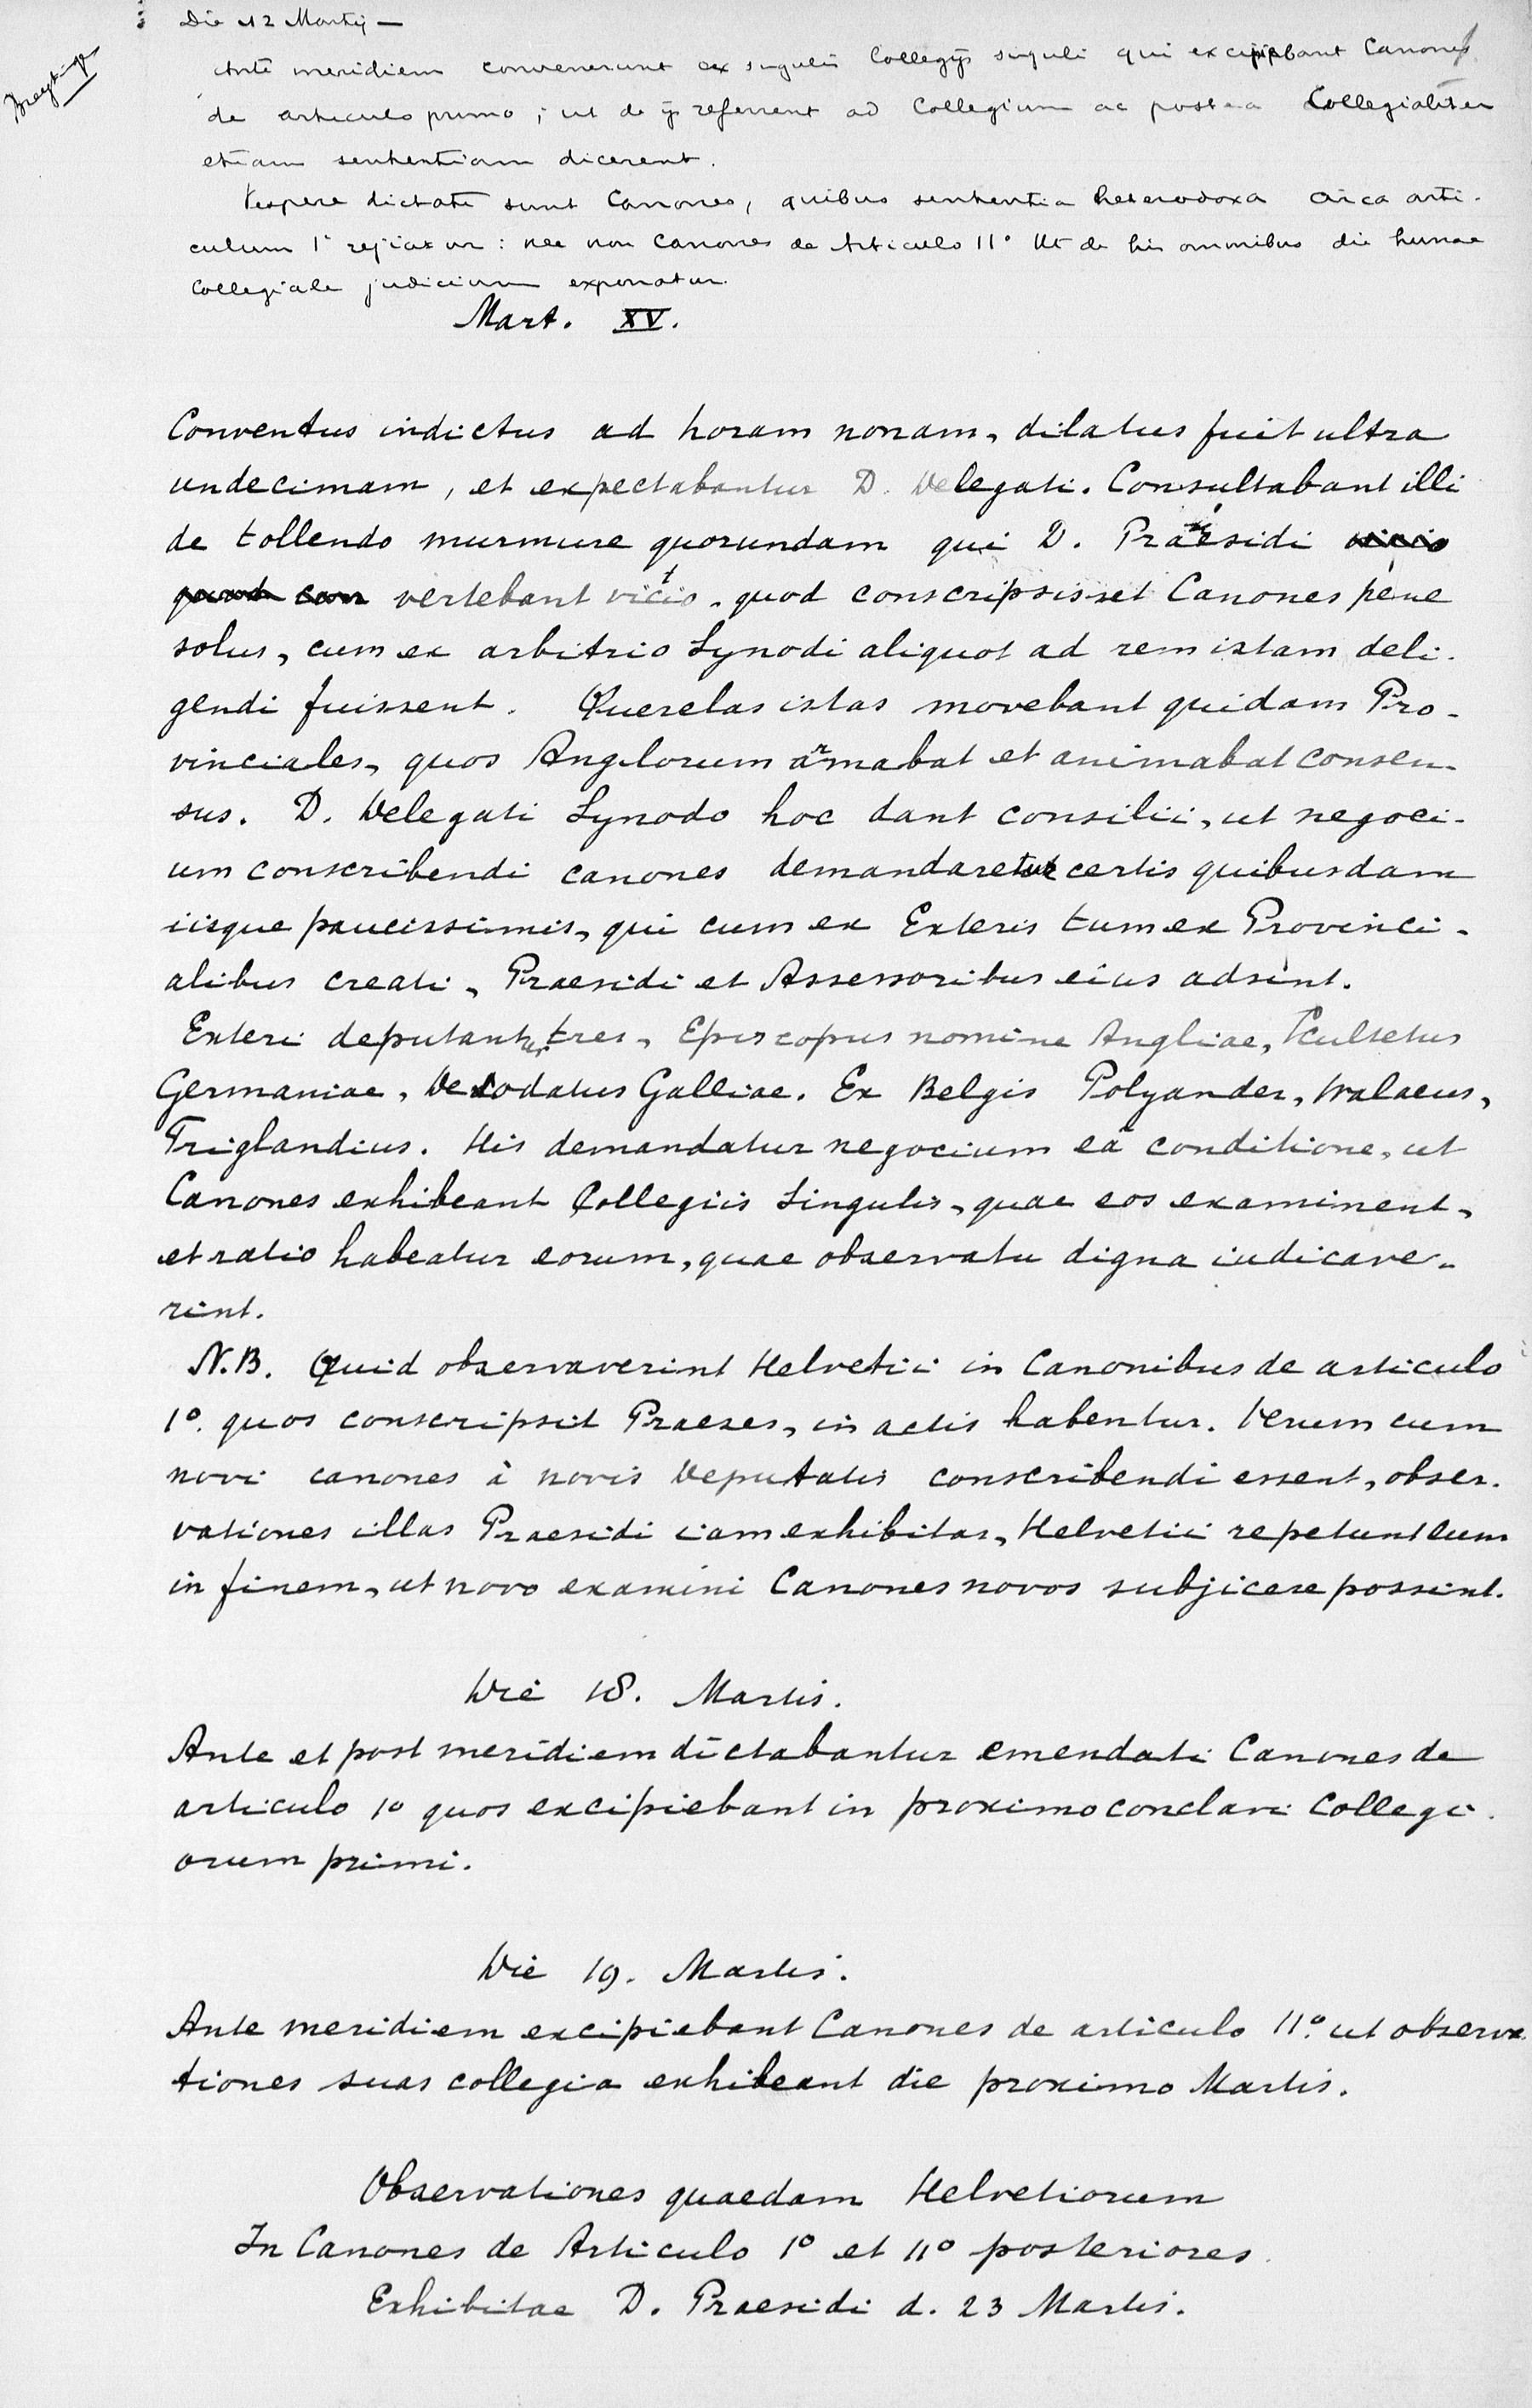 Die 12 Martij —
Breytinger
Ante meridiem convenerunt ex singulis Collegijs singuli qui excipiebant Canones
de articulo primo; ut de ijs referrent ad Collegium ac postea Collegialiter
etiam sententiam dicerent.
Vespere dictati sunt Canones, quibus sententia heterodoxa circa arti-
culum 1m rejiciatur: nec non Canones de Articulo 11o Ut de his omnibus die lunae
Collegiale judicium exponatur.
Mart. XV.
Conventus indictus ad horam nonam, dilatus fuit ultra
undecimam, et expectabantur D. Delegati. Consultabant illi
de tollendo murmure quorundam qui D. Praesidi vicio
quod con vertebant vitio, quod conscripsisset Canones pene
solus, cum ex arbitrio Synodi aliquot ad rem istam deli-
gendi fuissent. Querelas istas movebant quidam Pro-
vinciales, quos Anglorum armabat et animabat consen-
sus. D. Delegati Synodo hoc dant consilii, ut negoci-
um conscribendi canones demandaretur certis quibusdam
iisque paucissimis, qui cum ex Exteris tum ex Provinci-
alibus creati, Praesidi et Assessoribus eius adsint.
Exteri deputantur tres, Episcopus nomine Angliae, Scultetus
Germaniae, Deodatus Galliae. Ex Belgis Polyander, Walaeus,
Triglandius. His demandatur negocium eâ conditione, ut
Canones exhibeant Collegiis Singulis, quae eos examinent,
et ratio habeatur eorum, quae observatu digna iudicave-
rint.
N.B. Quid observaverint Helvetii in Canonibus de articulo
1o. quos conscripsit Praeses, in actis habentur. Verum cum
novi canones à novis Deputatis conscribendi essent, obser-
vationes illas Praesidi iam exhibitas, Helvetii repetunt eum
in finem, ut novo examini Canones novos subjicere possint.
Die 18. Martis.
Ante et post meridiem dictabantur emendati Canones de
articulo 1o quos excipiebant in proximo conclavi Collegi-
orum primi.
Die 19. Martis.
Ante meridiem excipiebant Canones de articulo 11o. ut observa
tiones suas collegia exhibeant die proximo Martis.
Observationes quaedam Helvetiorum
In Canones de Articulo 1o et 11o posteriores.
Exhibitae D. Praesidi d. 23 Martis.